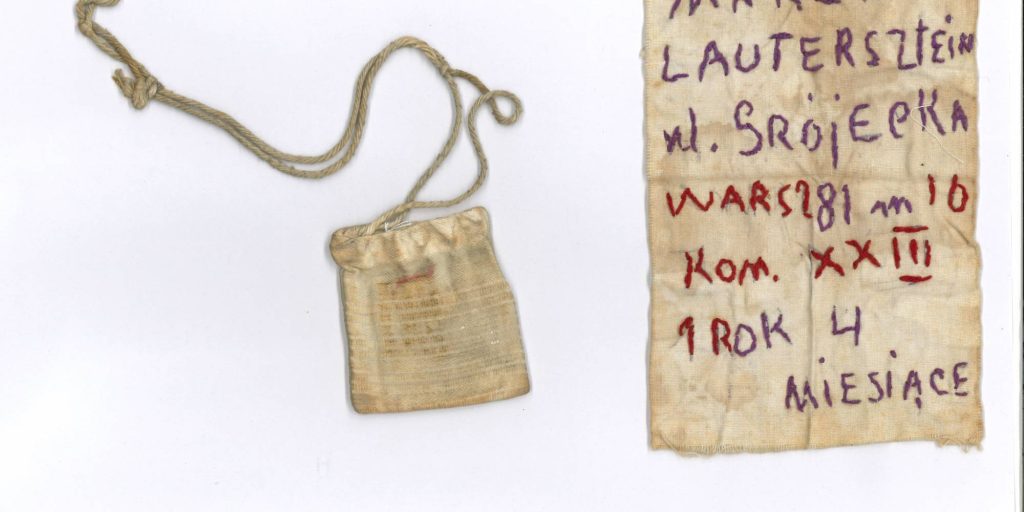 LAUTERSZTEIN
ul. GRÓJECKA
WARSZ 81 m 10
KOM. XXIII
1 ROK 4
MIESIĄCE